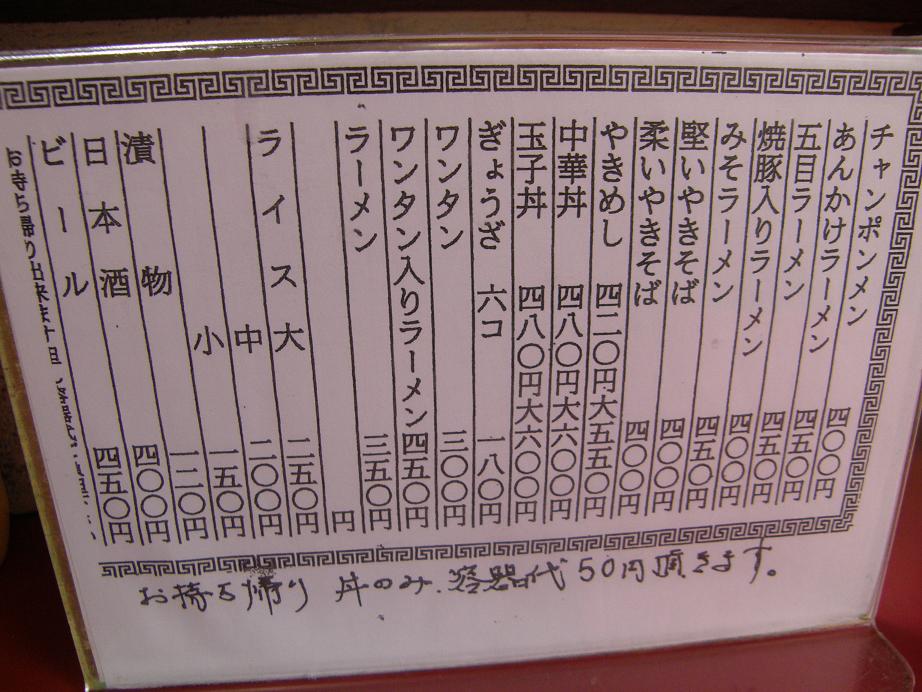 チャンポンメン 四〇〇円
あんかけラーメン 四五〇円
五目ラーメン 四五〇円
焼豚入りラーメン 四〇〇円
みそラーメン 四五〇円
堅いやきそば 四〇〇円
柔いやきそば 四〇〇円
やきめし 四二〇円大五五〇円
中華丼 四八〇円大六〇〇円
玉子丼 四八〇円大六〇〇円
ぎょうざ 六コ 一八〇円
ワンタン 三〇〇円
ワンタン入りラーメン 四五〇円
ラーメン 三五〇円
円
ライス 大 二五〇円
中 二〇〇円
小 一五〇円
漬物 一二〇円
日本酒 四〇〇円
ビール 四五〇円
お持ち帰り出来ます但
お持ち帰り 丼のみ.容器代50円頂きます。